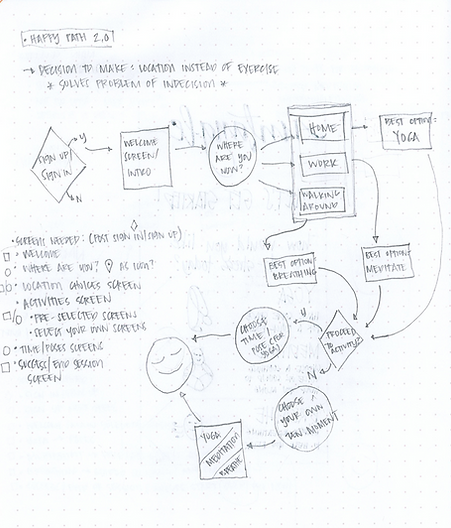 • HAPPY PATH 2.0
→ DECISION TO MAKE: LOCATION INSTEAD OF EXERCISE
* SOLVES PROBLEM OF INDECISION *
SIGN UP/
SIGN IN
Y
N
WELCOME
SCREEN/
INTRO
WHERE
ARE YOU
NOW?
HOME
WORK
WALKING
AROUND
BEST OPTION:
YOGA
BEST OPTION:
BREATHING
BEST OPTION:
MEDITATE
PROCEED
TO
ACTIVITY?
Y
N
CHOOSE
TIME/
POSE (FOR
YOGA)
CHOOSE
YOUR OWN
ZEN ADMENT
YOGA
MEDITATION
BREATHE
• SCREENS NEEDED: (POST SIGN IN/SIGN UP)
• WELCOME
• WHERE ARE YOU? AS ICON?
• LOCATION CHOICES SCREEN
• ACTIVITIES SCREEN
• PRE-SELECTED SCREENS
• SELECT YOUR OWN SCREENS
• TIME/POSES SCREENS
• SUCCESS/END SESSION
SCREEN